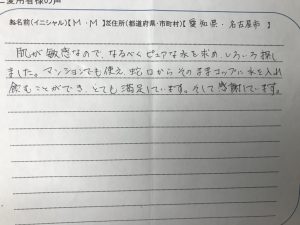 ご愛用者様の声
お名前(イニシャル)【 M・M 】ご住所(都道府県・市町村)【 愛知県・名古屋市 】
肌が敏感なので、なるべくピュアな水を求め、いろいろ探し
ました。マンションでも使え、蛇口からそのままコップに水を入れ
飲むことができ、とても満足しています。そして感謝しています。